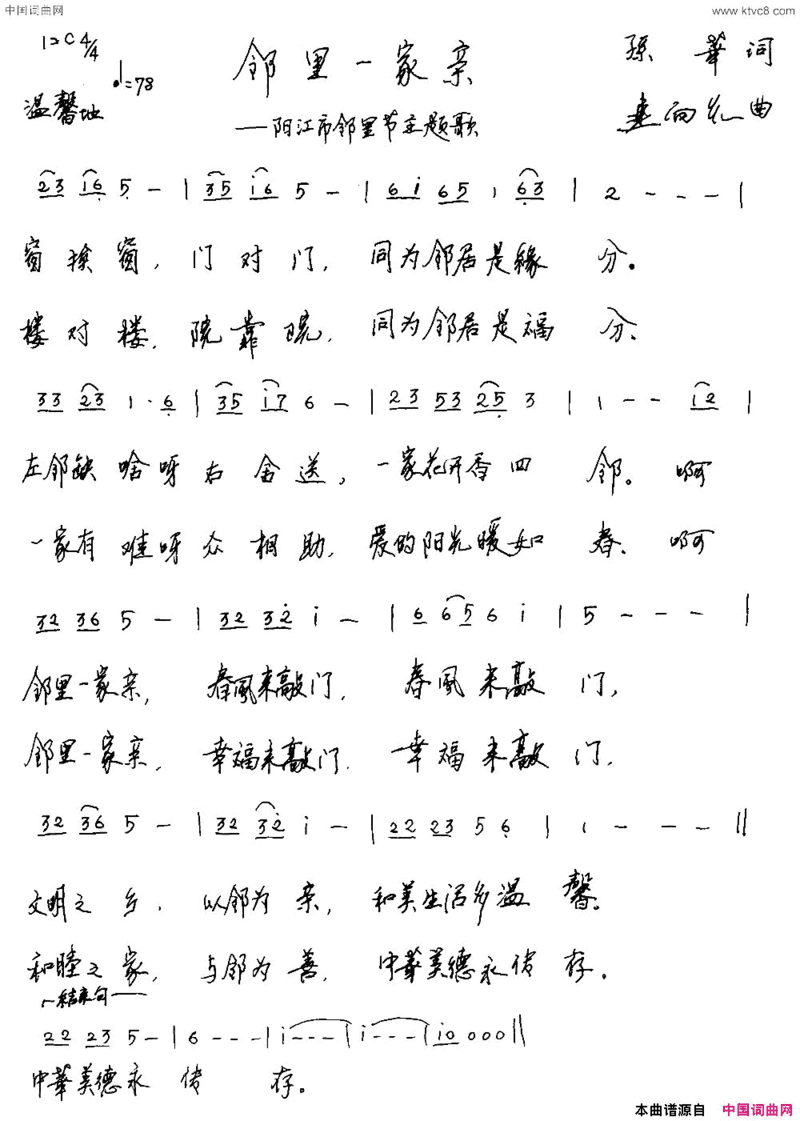 中国词曲网 www.ktvc8.com
1=C 4/4 ♩=78
邻里一家亲
孙華词
温馨地
——阳江市邻里节主题歌
曲
23 i6 5 - | 35 i6 5 - | 6i 65 1 63 | 2 - - - |
窗挨窗，门对门，同为邻居是缘分。
楼对楼，院靠院，同为邻居是福分。
33 23 1· 6 | 35 i7 6 - | 23 53 25 3 | 1 - - 12 |
左邻缺啥呀右舍送，一家花开香四邻。啊
一家有难呀众相助，爱的阳光暖如春。啊
32 36 5 - | 32 32 i - | 6 65 6 i | 5 - - - |
邻里一家亲，春風来敲门，春風来敲门，
邻里一家亲，幸福来敲门，幸福来敲门，
32 36 5 - | 32 32 i - | 22 23 5 6 | 1 - - - ||
文明之乡，以邻为亲，和美生活多温馨。
和睦之家，与邻为善，中華美德永传存。
结束句
22 23 5 - | 6 - - - | i - - - | i - - - | i0 0 0 0 ||
中華美德永传存。
本曲谱源自 中国词曲网